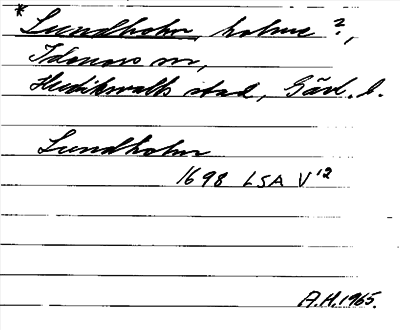 *Lundholm, holme ?,
Idenors sn,
Hudiksvalls stad, Gävl. l.
Lundholm
1698 LSA V¹²
A.H. 1965.